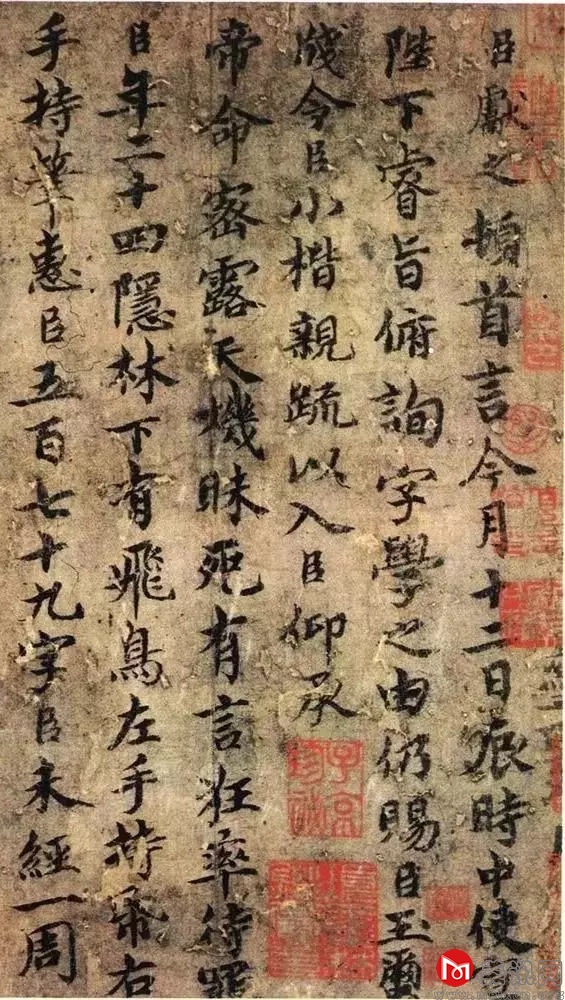 臣獻之頓首言今月十二日辰時中使
陛下睿旨俯詢字學之由仍賜臣玉
牋令臣小楷親疏以入臣仰承
帝命密露天機昧死有言狂率待罪
臣年二十四隱林下有飛鳥左手持帋右
手持筆惠臣五百七十九字臣未經一周